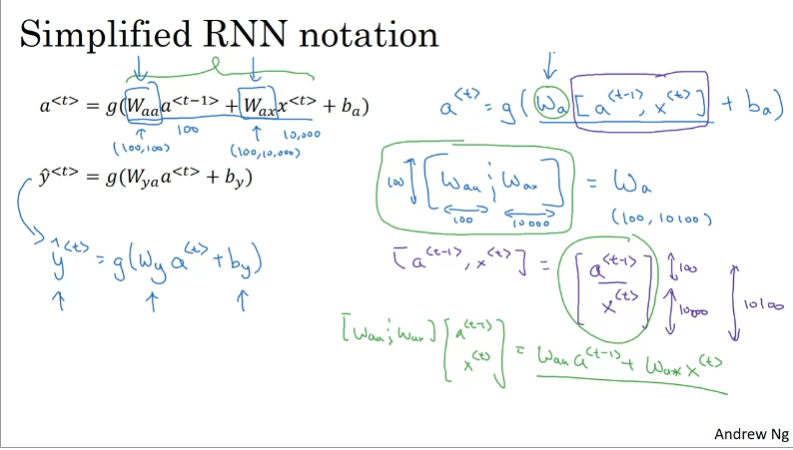 Simplified RNN notation
a<t> = g(Waa a<t−1> + Wax x<t> + ba)
100 10,000
(100,100) (100,10,000)
ŷ<t> = g(Wya a<t> + by)
ŷ<t> = g(Wy a<t> + by)
a<t> = g(Wa [a<t-1>, x<t>] + ba)
100 [Waa ; Wax] = Wa
100 10000
(100, 10100)
[a<t-1>, x<t>] = [a<t-1> x<t>] 100 10000 10100
[Waa ; Wax] [a<t-1> x<t>] = Waa a<t-1> + Wax x<t>
Andrew Ng